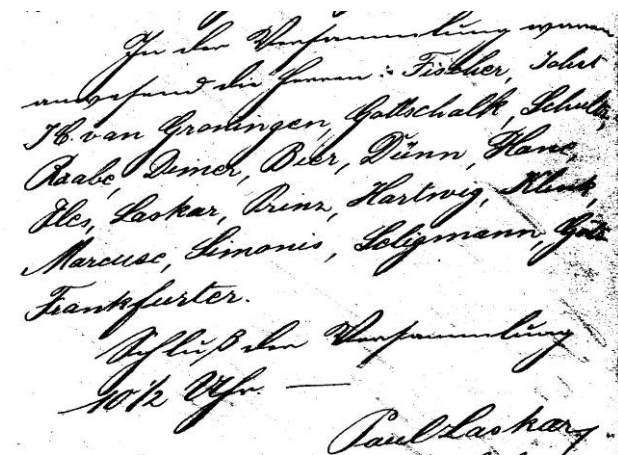 In der Versammlung waren
anwesend die Herren: Fischer,
van Groningen, Gottschalk, Schulz,
Raabe, Deiner, Bier, Dünn,
Iles, Laskar, Prinz, Hartwig, Klink,
Marcuse, Simonis, Seligmann,
Frankfurter.
Schluß der Versammlung
10 1/2 Uhr. —
Paul Laskar